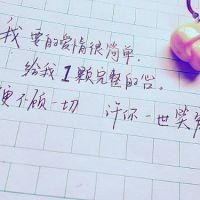 我要的爱情很简单.
给我1颗完整的心。
便不顾一切 许你一世笑